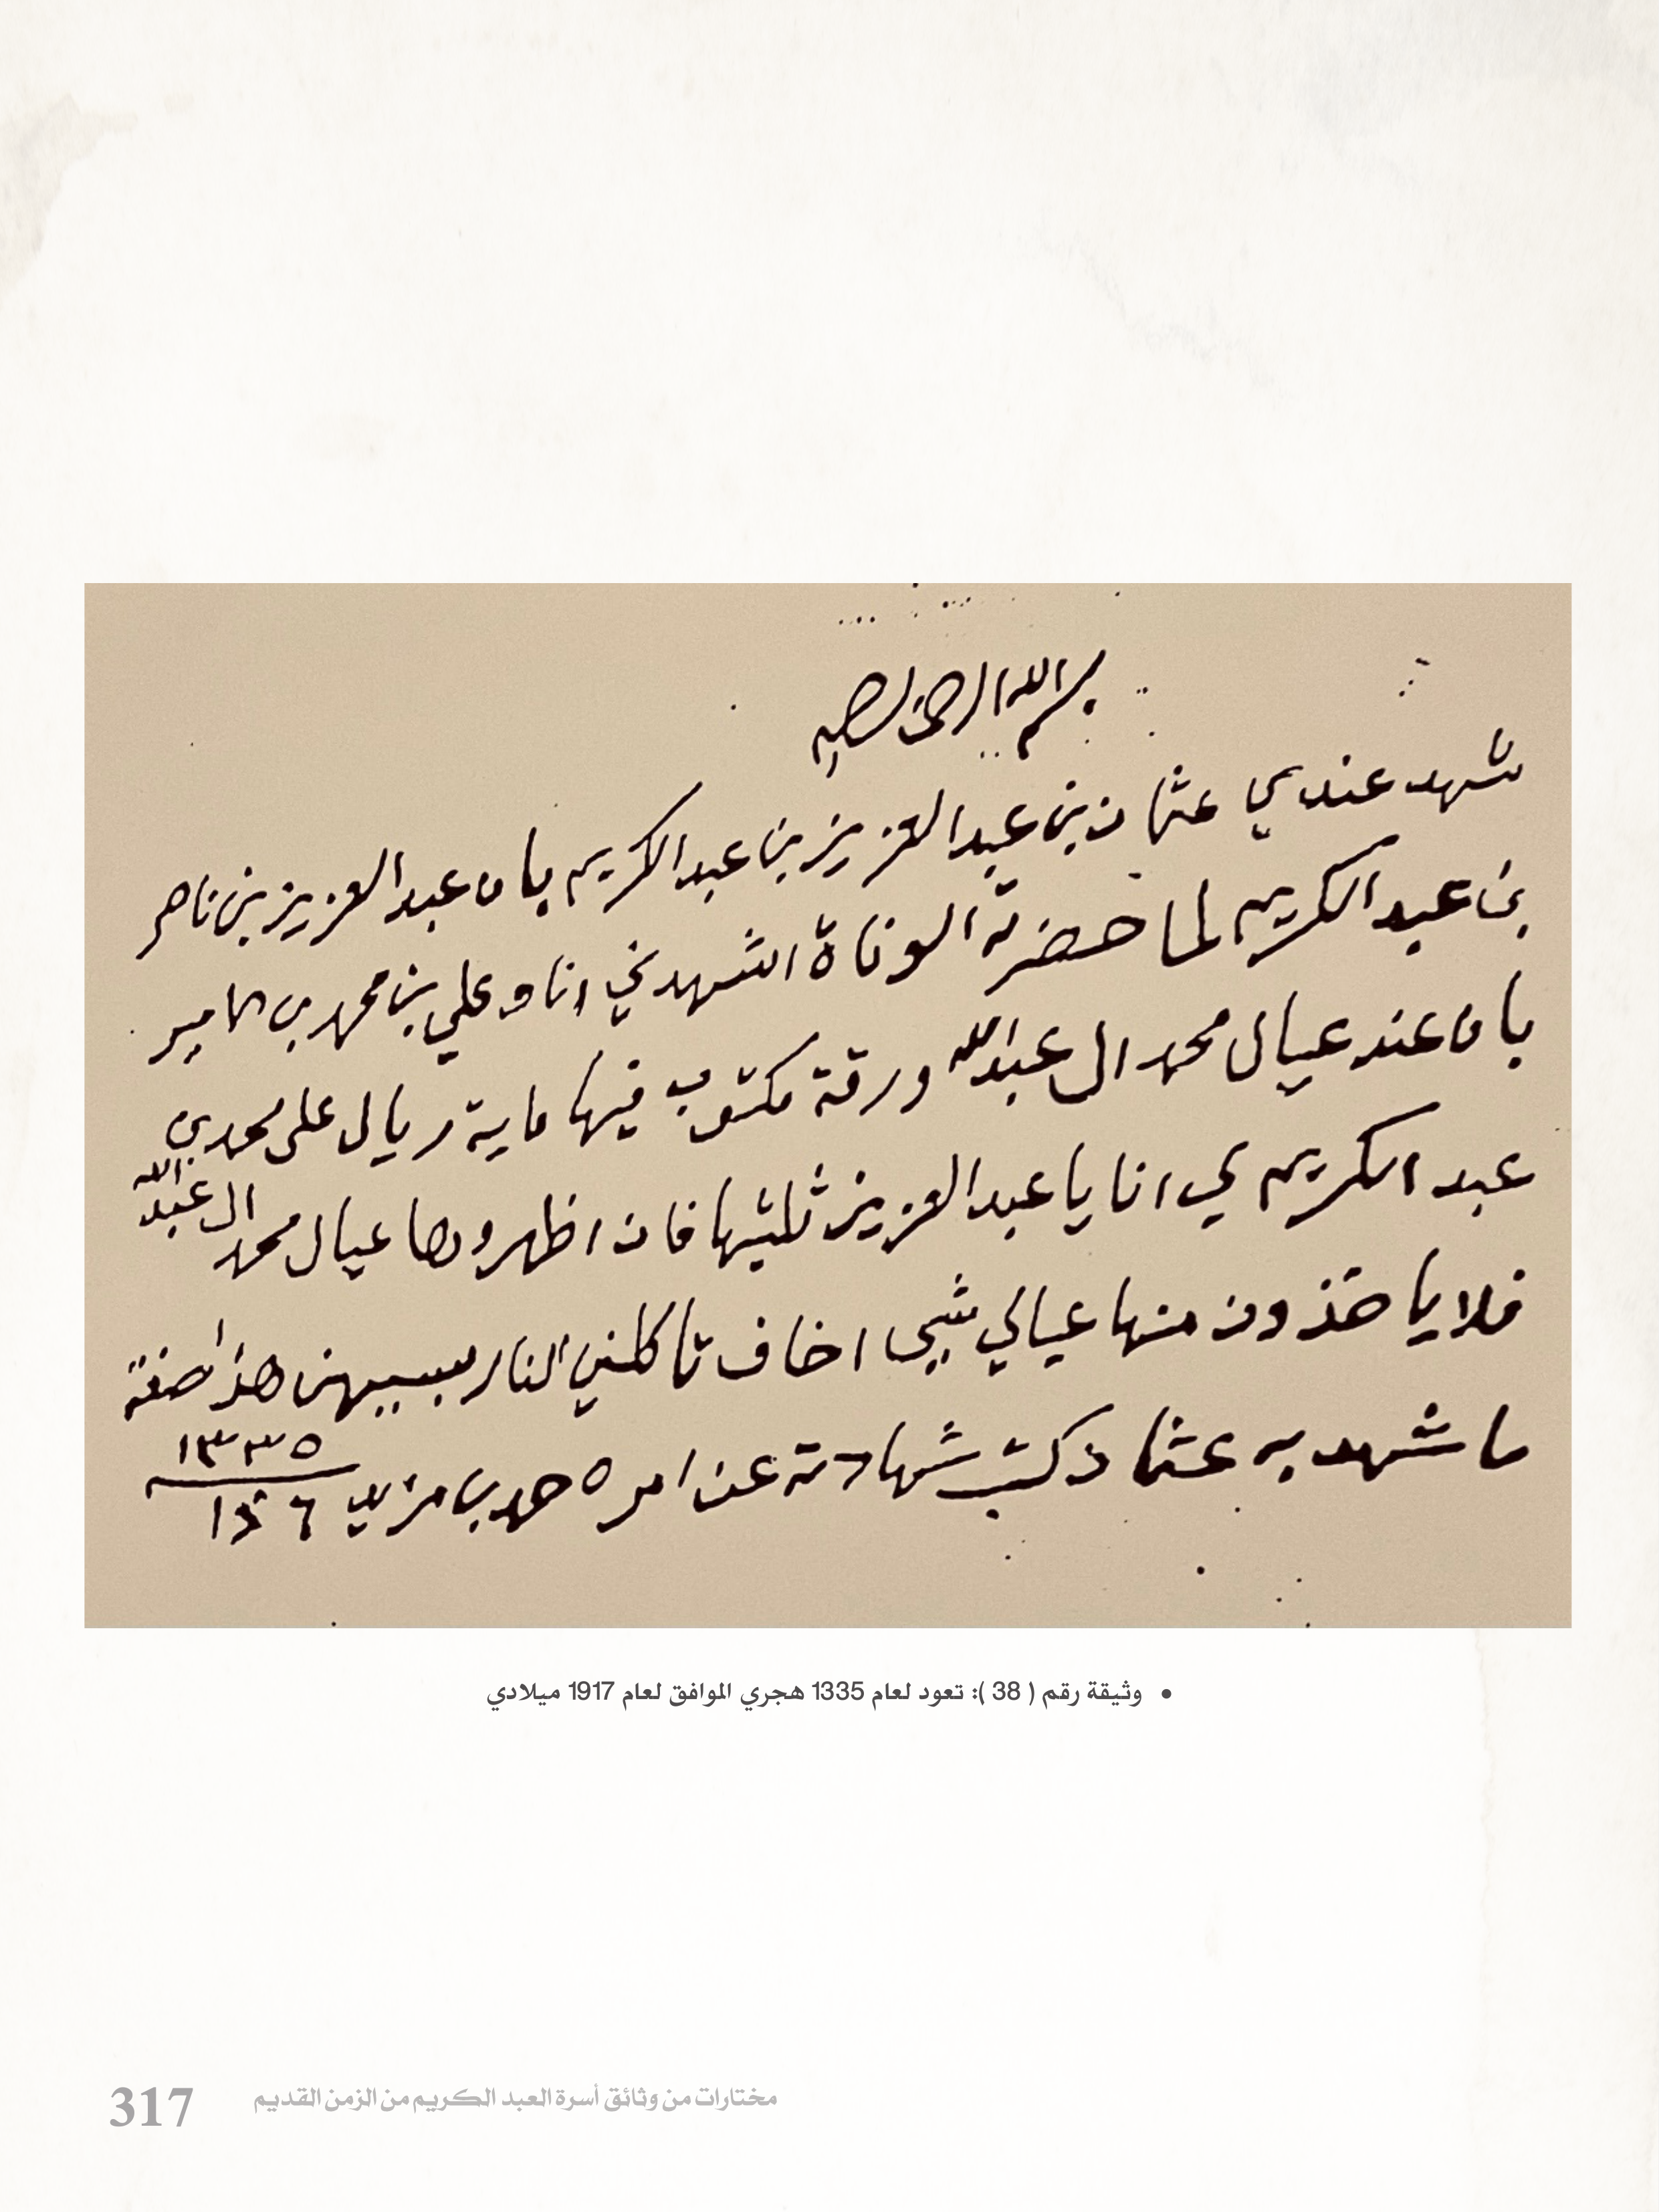 بسم الله الرحمن الرحيم
شهد عندي عثمان بن عبد العزيز بن عبد الكريم بان عبد العزيز بن ناصر
بن عبد الكريم لما حضرته الوفاة اشهدني انا وعلي بن محمد بن
بان عند عيال محمد ال عبدالله ورقة مكتوب فيها ماية ريال على محمد بن
عبد الكريم لي انا يا عبد العزيز ثلثيها فان اظهروها عيال محمد ال عبدالله
فلا ياخذون منها عيالي شي اخاف تاكلني النار بسببهن هذا صفة
ما شهد به عثمان كتب شهادته عن امره حمد بن مزيد ١٣٣٥
• وثيقة رقم ( 38 ): تعود لعام 1335 هجري الموافق لعام 1917 ميلادي
مختارات من وثائق أسرة العبد الكريم من الزمن القديم 317